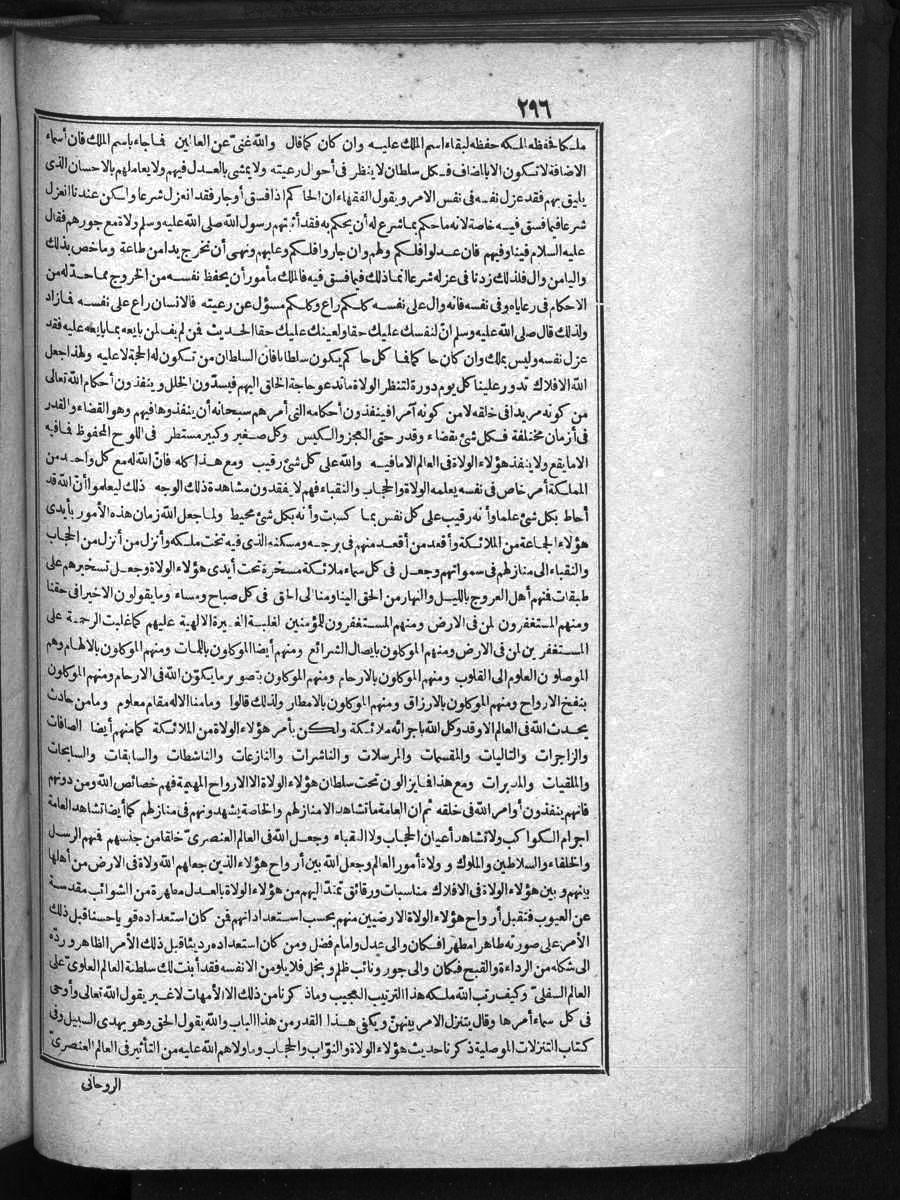 ٢٩٦
ملكا فحفظه لملكه حفظه لبقاء اسم الملك عليه وان كان كما قال والله غنى عن العالمين فما جاء باسم الملك فان أسماء
الاضافة لا تكون الا بالمضاف فكل سلطان لا ينظر فى أحوال رعيته ولا يمشى بالعدل فيهم ولا يعاملهم بالاحسان الذى
يليق بهم فقد عزل نفسه فى نفس الامر ويقول الفقهاء ان الحاكم اذا فسق أو جار فقد انعزل شرعا ولكن عندنا انعزل
شرعا فيما فسق فيه خاصة لانه ما حكم بما شرع له أن يحكم به فقد أثبتهم رسول الله صلى الله عليه وسلم ولاة مع جورهم فقال
عليه السلام فينا وفيهم فان عدلوا فلكم ولهم وان جاروا فلكم وعليهم ونهى أن نخرج يدا من طاعة وما خص بذلك
واليا من وال فلذلك زدنا فى عزله شرعا انما ذلك فيما فسق فيه فالملك مأمور أن يحفظ نفسه من الخروج مما حد له من
الاحكام فى رعاياه وفى نفسه فانه وال على نفسه كلكم راع وكلكم مسؤل عن رعيته فالانسان راع على نفسه فما زاد
ولذلك قال صلى الله عليه وسلم ان لنفسك عليك حقا ولعينك عليك حقا الحديث فمن لم يف لمن بايعه بما بايعه عليه فقد
عزل نفسه وليس بملك وان كان حاكما فما كل حاكم يكون سلطانا فان السلطان من تكون له الحجة لا عليه ولهذا جعل
الله الافلاك تدور علينا كل يوم دورة لتنظر الولاة ما تدعو حاجة الخلق اليهم فيسدون الخلل وينفذون أحكام الله تعالى
من كونه مريدا فى خلقه لا من كونه آمرا فينفذون أحكامه التى أمرهم سبحانه أن ينفذوها فيهم وهو القضاء والقدر
فى أزمان مختلفة فكل شئ بقضاء وقدر حتى العجز والكيس وكل صغير وكبير مستطر فى اللوح المحفوظ فما فيه
الا ما يقع ولا ينفذ هؤلاء الولاة فى العالم الا ما فيه والله على كل شئ رقيب ومع هذا كله فان الله له مع كل واحد من
المملكة أمر خاص فى نفسه يعلمه الولاة والحجاب والنقباء فهم لا يفقدون مشاهدة ذلك الوجه ذلك ليعلموا أن الله قد
أحاط بكل شئ علما وأنه رقيب على كل نفس بما كسبت وأنه بكل شئ محيط ولما جعل الله زمان هذه الأمور بأيدى
هؤلاء الجماعة من الملائكة وأقعد من أقعد منهم فى برجه ومسكنه الذى فيه تخت ملكه وأنزل من أنزل من الحجاب
والنقباء الى منازلهم فى سمواتهم وجعل فى كل سماء ملائكة مسخرة تحت أيدى هؤلاء الولاة وجعل تسخيرهم على
طبقات فمنهم أهل العروج بالليل والنهار من الحق الينا ومنا الى الحق فى كل صباح ومساء وما يقولون الا خيرا فى حقنا
ومنهم المستغفرون لمن فى الارض ومنهم المستغفرون للمؤمنين لغلبة الغيرة الالهية عليهم كما غلبت الرحمة على
المستغفرين لمن فى الارض ومنهم الموكلون بايصال الشرائع ومنهم أيضا الموكلون باللمات ومنهم الموكلون بالالهام وهم
الموصلون العلوم الى القلوب ومنهم الموكلون بالارحام ومنهم الموكلون بتصوير ما يكون الله فى الارحام ومنهم الموكلون
بنفخ الارواح ومنهم الموكلون بالارزاق ومنهم الموكلون بالامطار ولذلك قالوا وما منا الا له مقام معلوم وما من حادث
يحدث الله فى العالم الا وقد وكل الله باجرائه ملائكة ولكن بأمر هؤلاء الولاة من الملائكة كما منهم أيضا الصافات
والزاجرات والتاليات والمقسمات والمرسلات والناشرات والنازعات والناشطات والسابقات والسابحات
والملقيات والمدبرات ومع هذا فما يزالون تحت سلطان هؤلاء الولاة الا الارواح المهيمة فهم خصائص الله ومن دونهم
فانهم ينفذون أوامر الله فى خلقه ثم ان العامة ما تشاهد الا منازلهم والخاصة يشهدونهم فى منازلهم كما أيضا تشاهد العامة
اجرام الكواكب ولا تشاهد أعيان الحجاب ولا النقباء وجعل الله فى العالم العنصرى خلقا من جنسهم فمنهم الرسل
والخلفاء والسلاطين والملوك وولاة أمور العالم وجعل الله بين أرواح هؤلاء الذين جعلهم الله ولاة فى الارض من أهلها
بينهم وبين هؤلاء الولاة فى الافلاك مناسبات ورقائق تمتد اليهم من هؤلاء الولاة بالعدل مطهرة من الشوائب مقدسة
عن العيوب فتقبل أرواح هؤلاء الولاة الارضيين منهم بحسب استعداداتهم فمن كان استعداده قويا حسنا قبل ذلك
الأمر على صورته طاهرا مطهرا فكان والى عدل وامام فضل ومن كان استعداده رديئا قبل ذلك الأمر الطاهر ورده
الى شكله من الرداءة والقبح فكان والى جور ونائب ظلم وبخل فلا يلومن الا نفسه فقد أبنت لك سلطنة العالم العلوى على
العالم السفلى وكيف رتب الله ملكه هذا الترتيب العجيب وما ذكرنا من ذلك الا الأمهات لا غير يقول الله تعالى وأوحى
فى كل سماء أمرها وقال يتنزل الامر بينهن ويكفى هذا القدر من هذا الباب والله يقول الحق وهو يهدى السبيل وفى
كتاب التنزلات الموصلية ذكرنا حديث هؤلاء الولاة والنواب والحجاب وما ولاهم الله عليه من التأثير فى العالم العنصرى
الروحانى